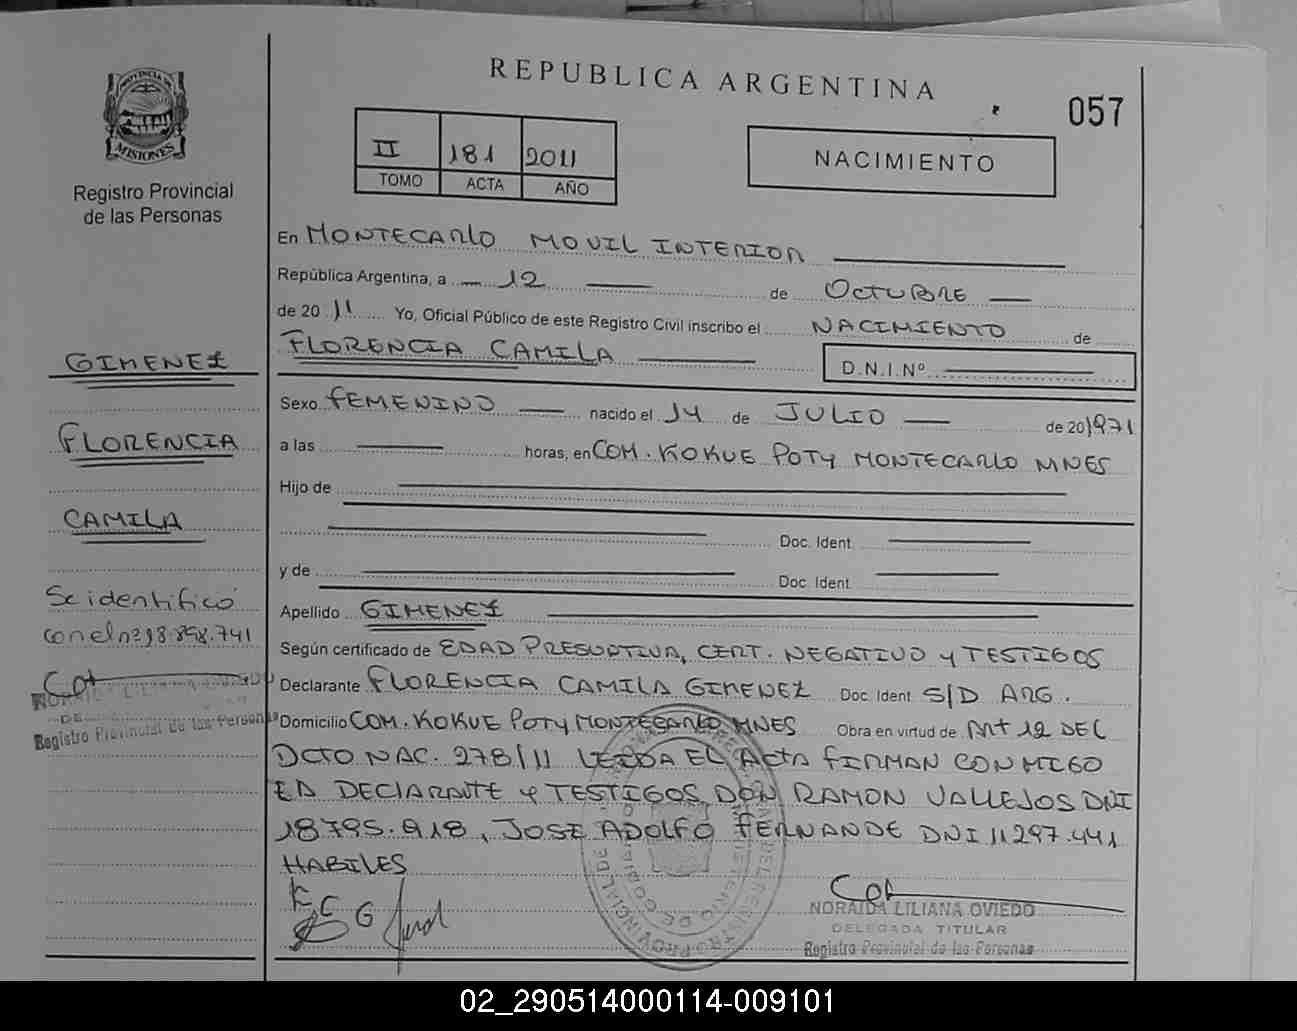 REPUBLICA ARGENTINA
057
PROVINCIA DE
MISIONES
Registro Provincial
de las Personas
II 181 2011
TOMO ACTA AÑO
NACIMIENTO
En MONTECARLO MOVIL INTERIOR
República Argentina, a 12 de OCTUBRE
de 2011 Yo, Oficial Público de este Registro Civil inscribo el NACIMIENTO de
FLORENCIA CAMILA
D.N.I.Nº
Sexo FEMENINO nacido el 14 de JULIO de 201971
a las horas, en COM. KOKUE POTY MONTECARLO MNES
Hijo de
Doc. Ident.
y de Doc. Ident.
Apellido GIMENEZ
Según certificado de EDAD PRESUPTIVA, CERT. NEGATIVO y TESTIGOS
Declarante FLORENCIA CAMILA GIMENEZ Doc. Ident. S/D ARG.
Domicilio COM. KOKUE POTY MONTECARLO MNES Obra en virtud de Art 12 DEL
DCTO NAC. 278/11 LEIDA EL ACTA FIRMAN CONMIGO
LA DECLARANTE y TESTIGOS DON RAMON VALLEJOS DNI
18795.918, JOSE ADOLFO FERNANDE DNI 11297.441
HABILES
GIMENEZ
FLORENCIA
CAMILA
Se identificó
con el nº 18.898.741
DE
Registro Provincial de las Personas
F C G
NORAIDA LILIANA OVIEDO
DELEGADA TITULAR
Registro Provincial de las Personas
02_290514000114-009101